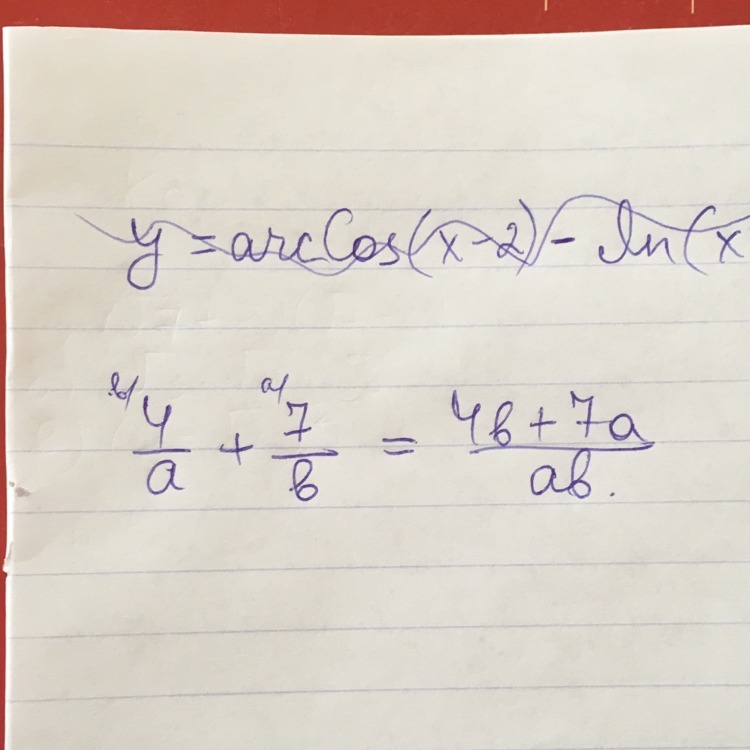 y = arccos(x-2) - ln(x
b/ 4/a + a/ 7/b = 4b+7a/ab.